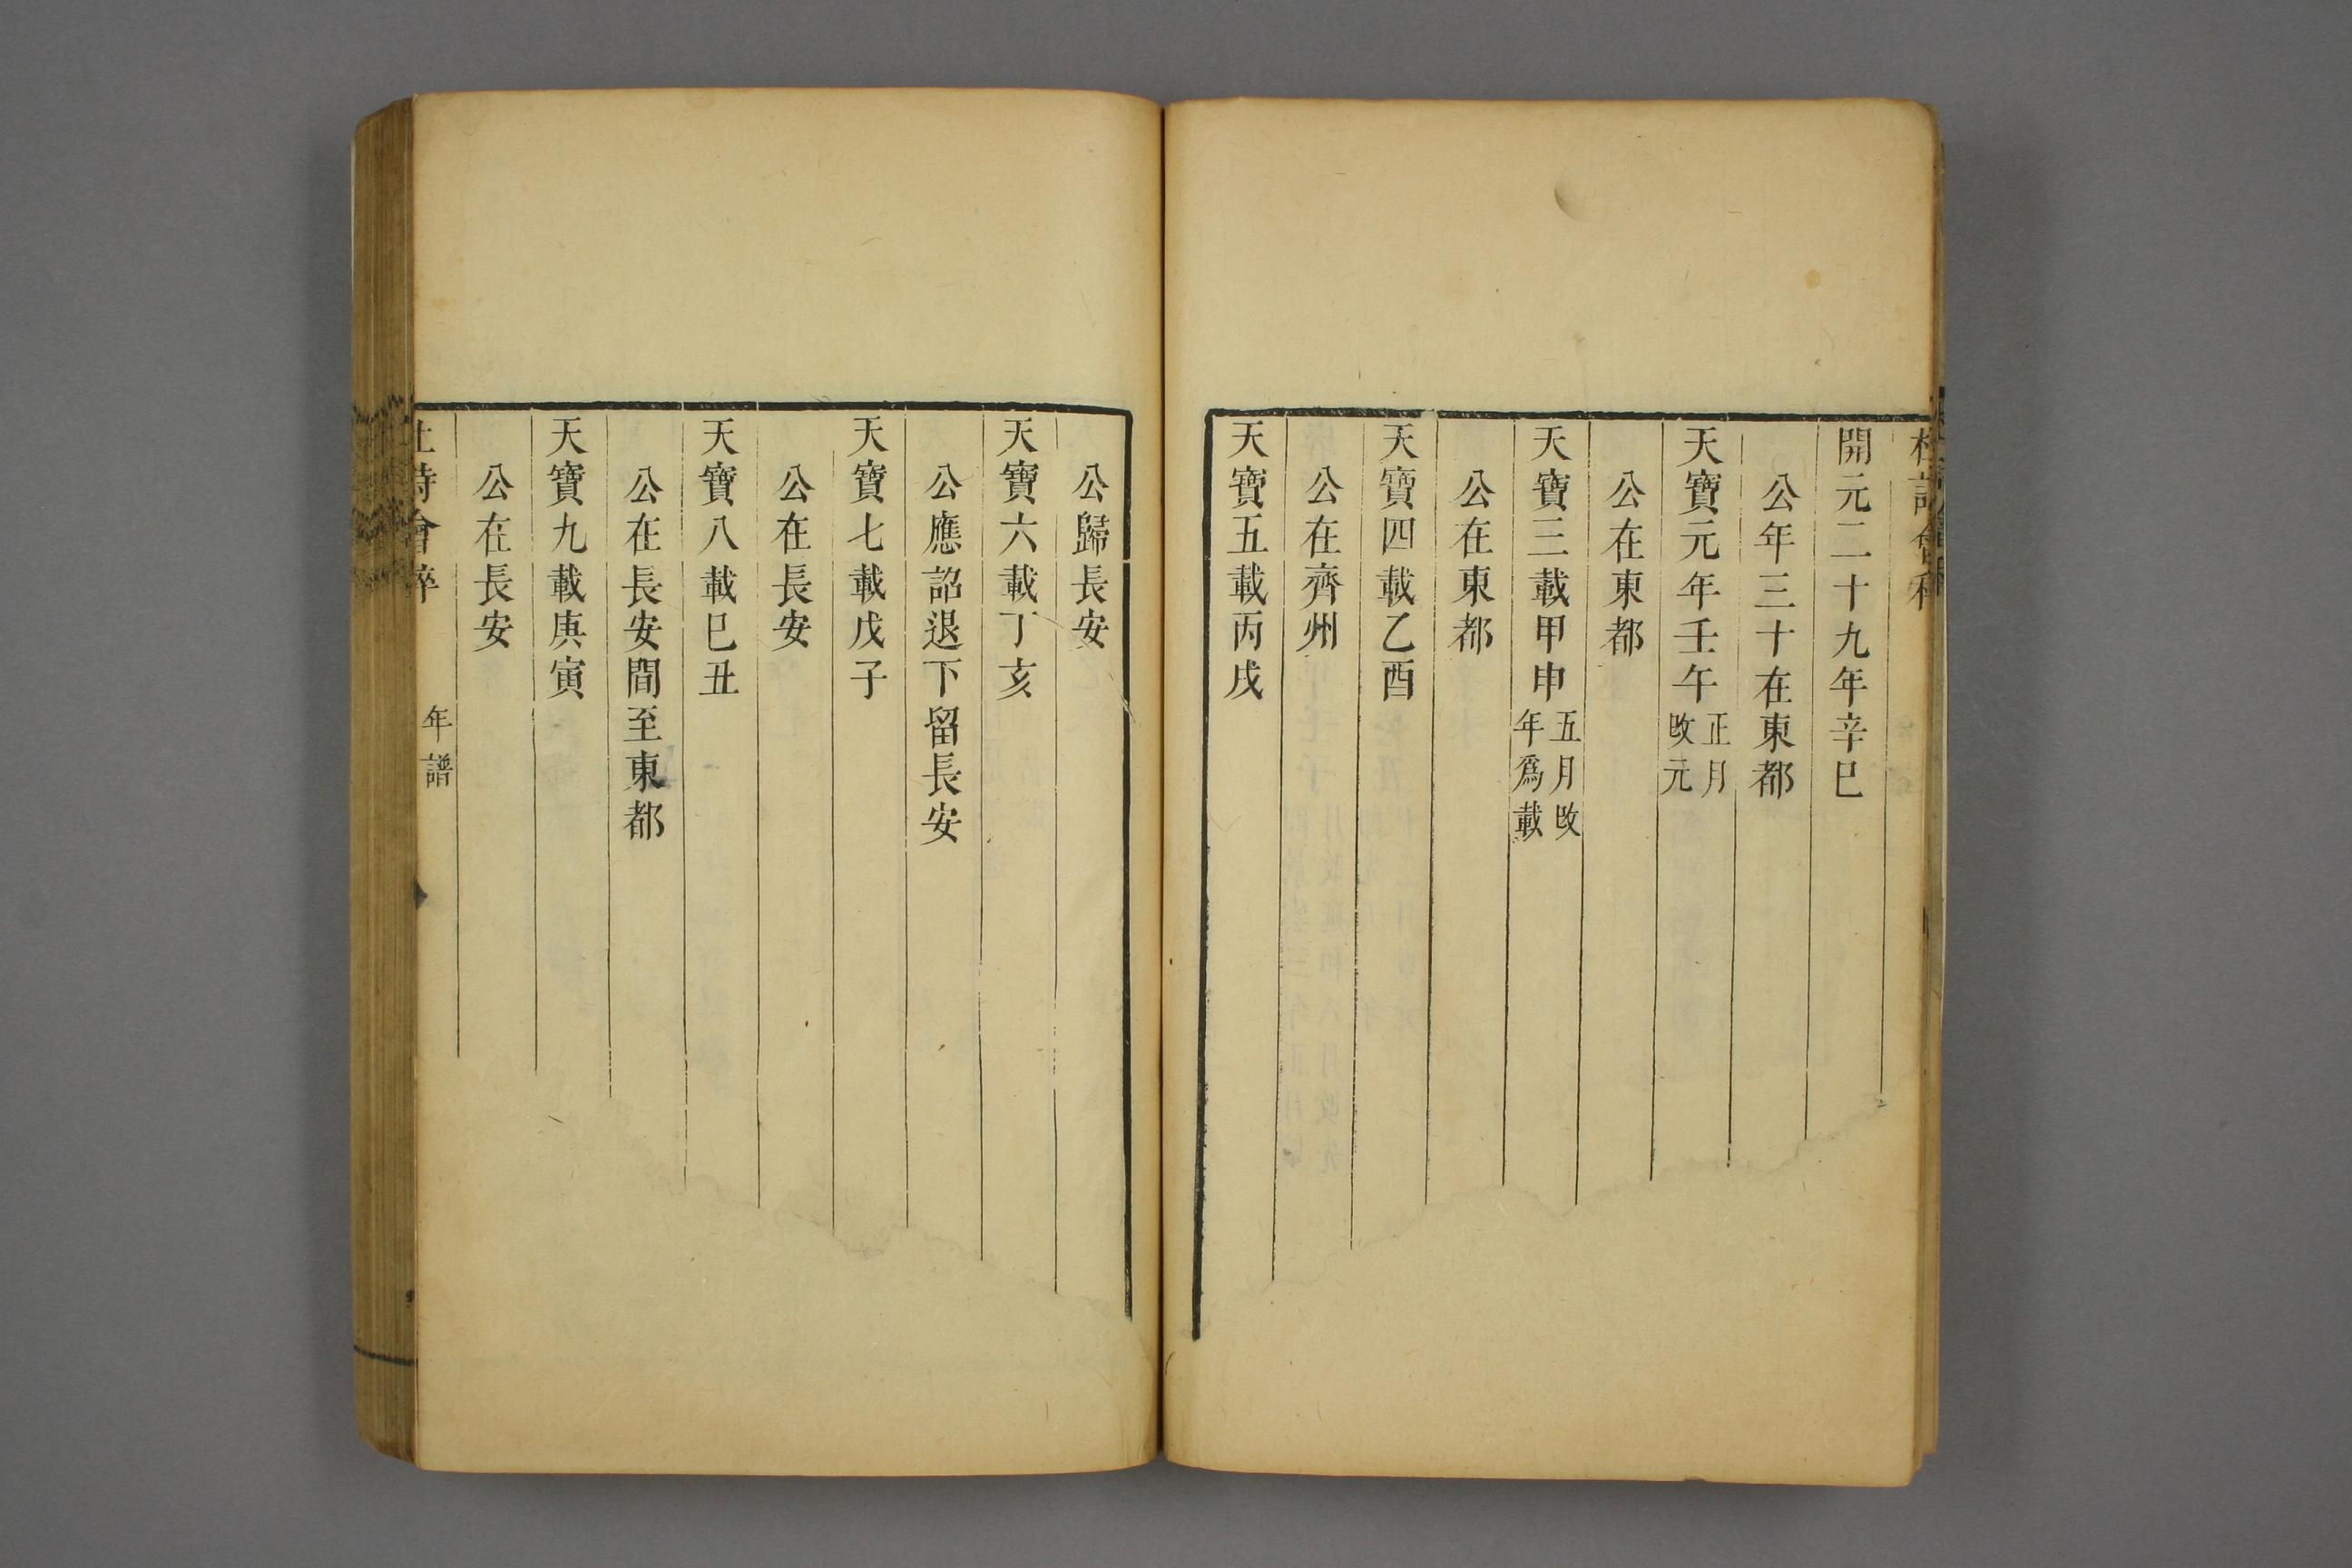 開元二十九年辛巳
公年三十在東都
天寶元年壬午正月改元
公在東都
天寶三載甲申五月改年爲載
公在東都
天寶四載乙酉
公在齊州
天寶五載丙戌
公歸長安
天寶六載丁亥
公應詔退下留長安
天寶七載戊子
公在長安
天寶八載巳丑
公在長安間至東都
天寶九載庚寅
公在長安
詩會稡
年譜